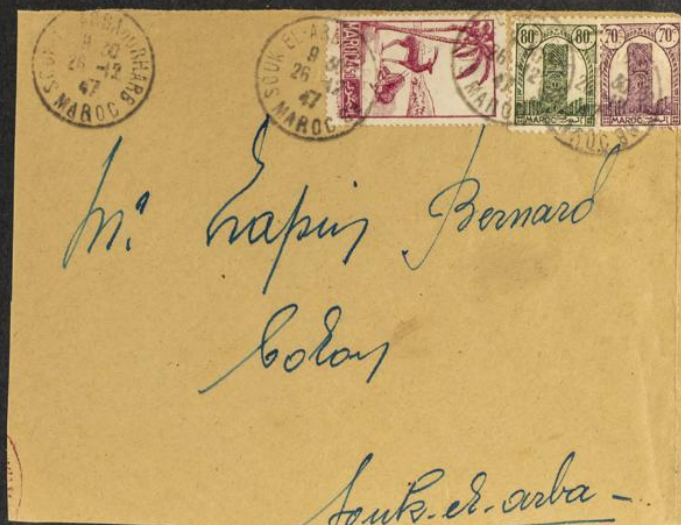 SOUK-EL-ARBA-DU-RHARB
9 30
26 -12
47
MAROC
SOUK-EL-AR
9 30
26 -12
47
MAROC
MAROC
80c 80c
MAROC
70c 70c
MAROC
Mr Lapin Bernard
Colon
Souk-el-arba -